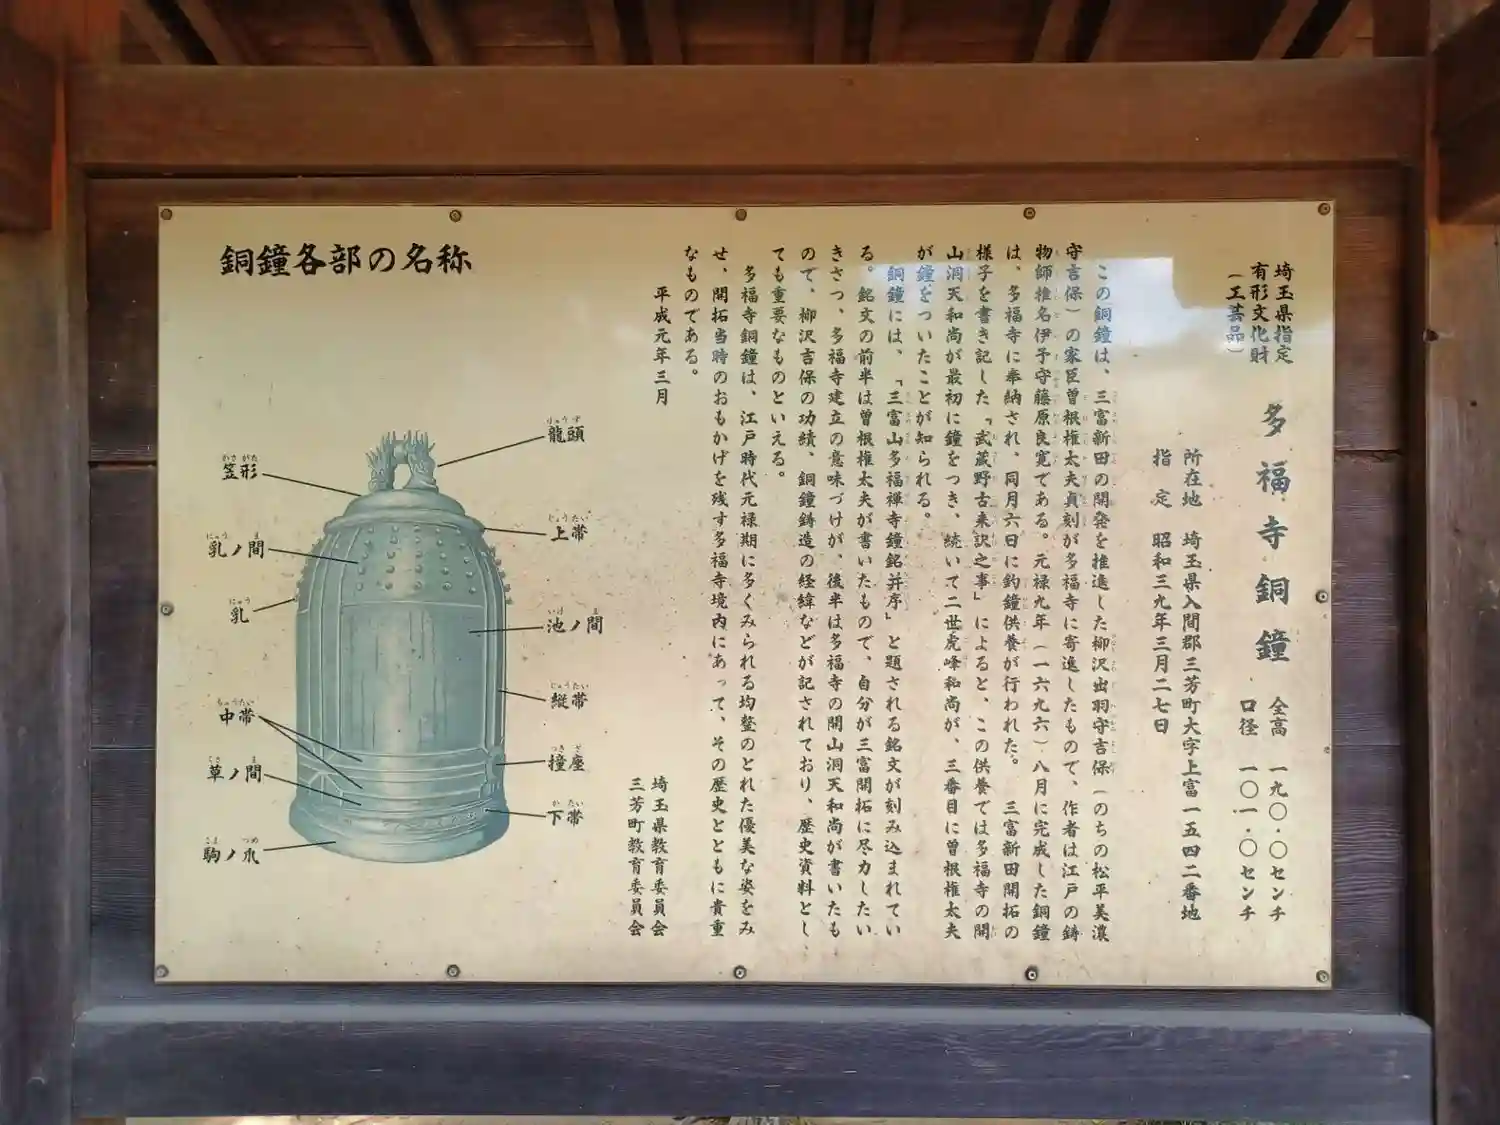 埼玉県指定
有形文化財
（工芸品）
多福寺銅鐘
全高　一九〇・〇センチ
口径　一〇一・〇センチ
所在地　埼玉県入間郡三芳町大字上富一五四二番地
指　定　昭和三九年三月二七日
この銅鐘は、三富新田の開発を推進した柳沢出羽守吉保（のちの松平美濃
守吉保）の家臣曽根権太夫貞刻が多福寺に寄進したもので、作者は江戸の鋳
物師椎名伊予守藤原良寛である。元禄九年（一六九六）八月に完成した銅鐘
は、多福寺に奉納され、同月六日に釣鐘供養が行われた。　三富新田開拓の
様子を書き記した「武蔵野古来訳之事」によると、この供養では多福寺の開
山洞天和尚が最初に鐘をつき、続いて二世虎峰和尚が、三番目に曽根権太夫
が鐘をついたことが知られる。
銅鐘には、「三富山多福禅寺鐘銘并序」と題される銘文が刻み込まれてい
る。銘文の前半は曽根権太夫が書いたもので、自分が三富開拓に尽力したい
きさつ、多福寺建立の意味づけが、後半は多福寺の開山洞天和尚が書いたも
ので、柳沢吉保の功績、銅鐘鋳造の経緯などが記されており、歴史資料とし
ても重要なものといえる。
多福寺銅鐘は、江戸時代元禄期に多くみられる均整のとれた優美な姿をみ
せ、開拓当時のおもかげを残す多福寺境内にあって、その歴史とともに貴重
なものである。
平成元年三月
埼玉県教育委員会
三芳町教育委員会
銅鐘各部の名称
りゅうず
龍頭
かさがた
笠形
じょうたい
上帯
にゅう　ま
乳ノ間
にゅう
乳
いけ　ま
池ノ間
じゅうたい
縦帯
ちゅうたい
中帯
つきざ
撞座
くさ　ま
草ノ間
かたい
下帯
こま　つめ
駒ノ爪